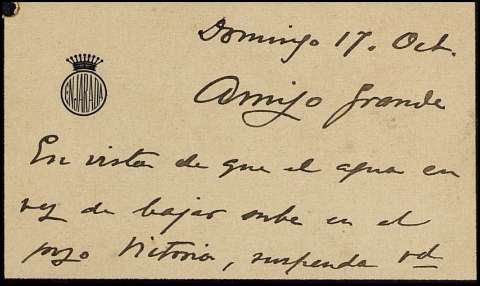 Domingo 17. Oct.
ENJARADA
Amigo Grande
En vista de que el agua en
vez de bajar sube en el
pozo Victoria, suspenda vd